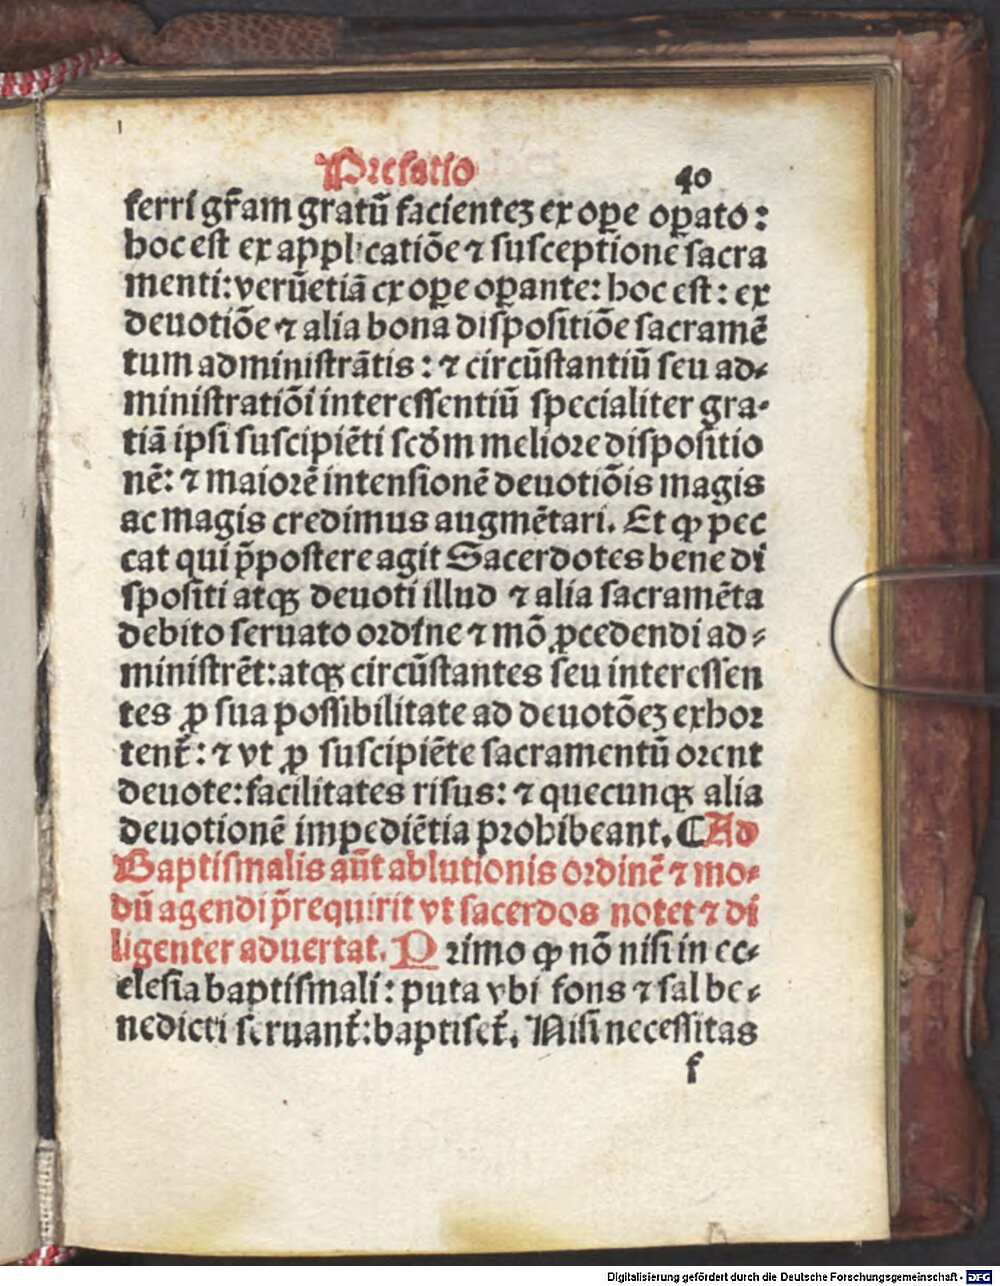 Prefatio 40
ferri gr̄am gratū facienteꝫ ex oꝑe oꝑato:
hoc est ex applicatiōe ⁊ susceptione sacra
menti: verūetiā ex oꝑe oꝑante: hoc est: ex
deuotiōe ⁊ alia bona dispositiōe sacramē
tum administrātis: ⁊ circūstantiū seu ad-
ministratiōi interessentiū specialiter gra-
tiā ipsi suscipiēti scḋm meliore dispositio
nē: ⁊ maiorē intensionē deuotiōis magis
ac magis credimus augmētari. Et ꝙ pec
cat qui p̄postere agit Sacerdotes bene di
spositi atqꝫ deuoti illud ⁊ alia sacramēta
debito seruato ordine ⁊ mō ꝓcedendi ad-
ministrēt: atqꝫ circūstantes seu interessen
tes ꝓ sua possibilitate ad deuotōeꝫ exhor
tent̄: ⁊ vt ꝓ suscipiēte sacramentū orent
deuote: facilitates risus: ⁊ quecunqꝫ alia
deuotionē impediētia prohibeant. ⸿ Ad
Baptismalis aūt ablutionis ordinē ⁊ mo-
dū agendi p̄requirit vt sacerdos notet ⁊ di
ligenter aduertat. Primo ꝙ nō nisi in ec-
clesia baptismali: puta vbi fons ⁊ sal be-
nedicti seruant̄: baptiset̄. Nisi necessitas
f
Digitalisierung gefördert durch die Deutsche Forschungsgemeinschaft - DFG